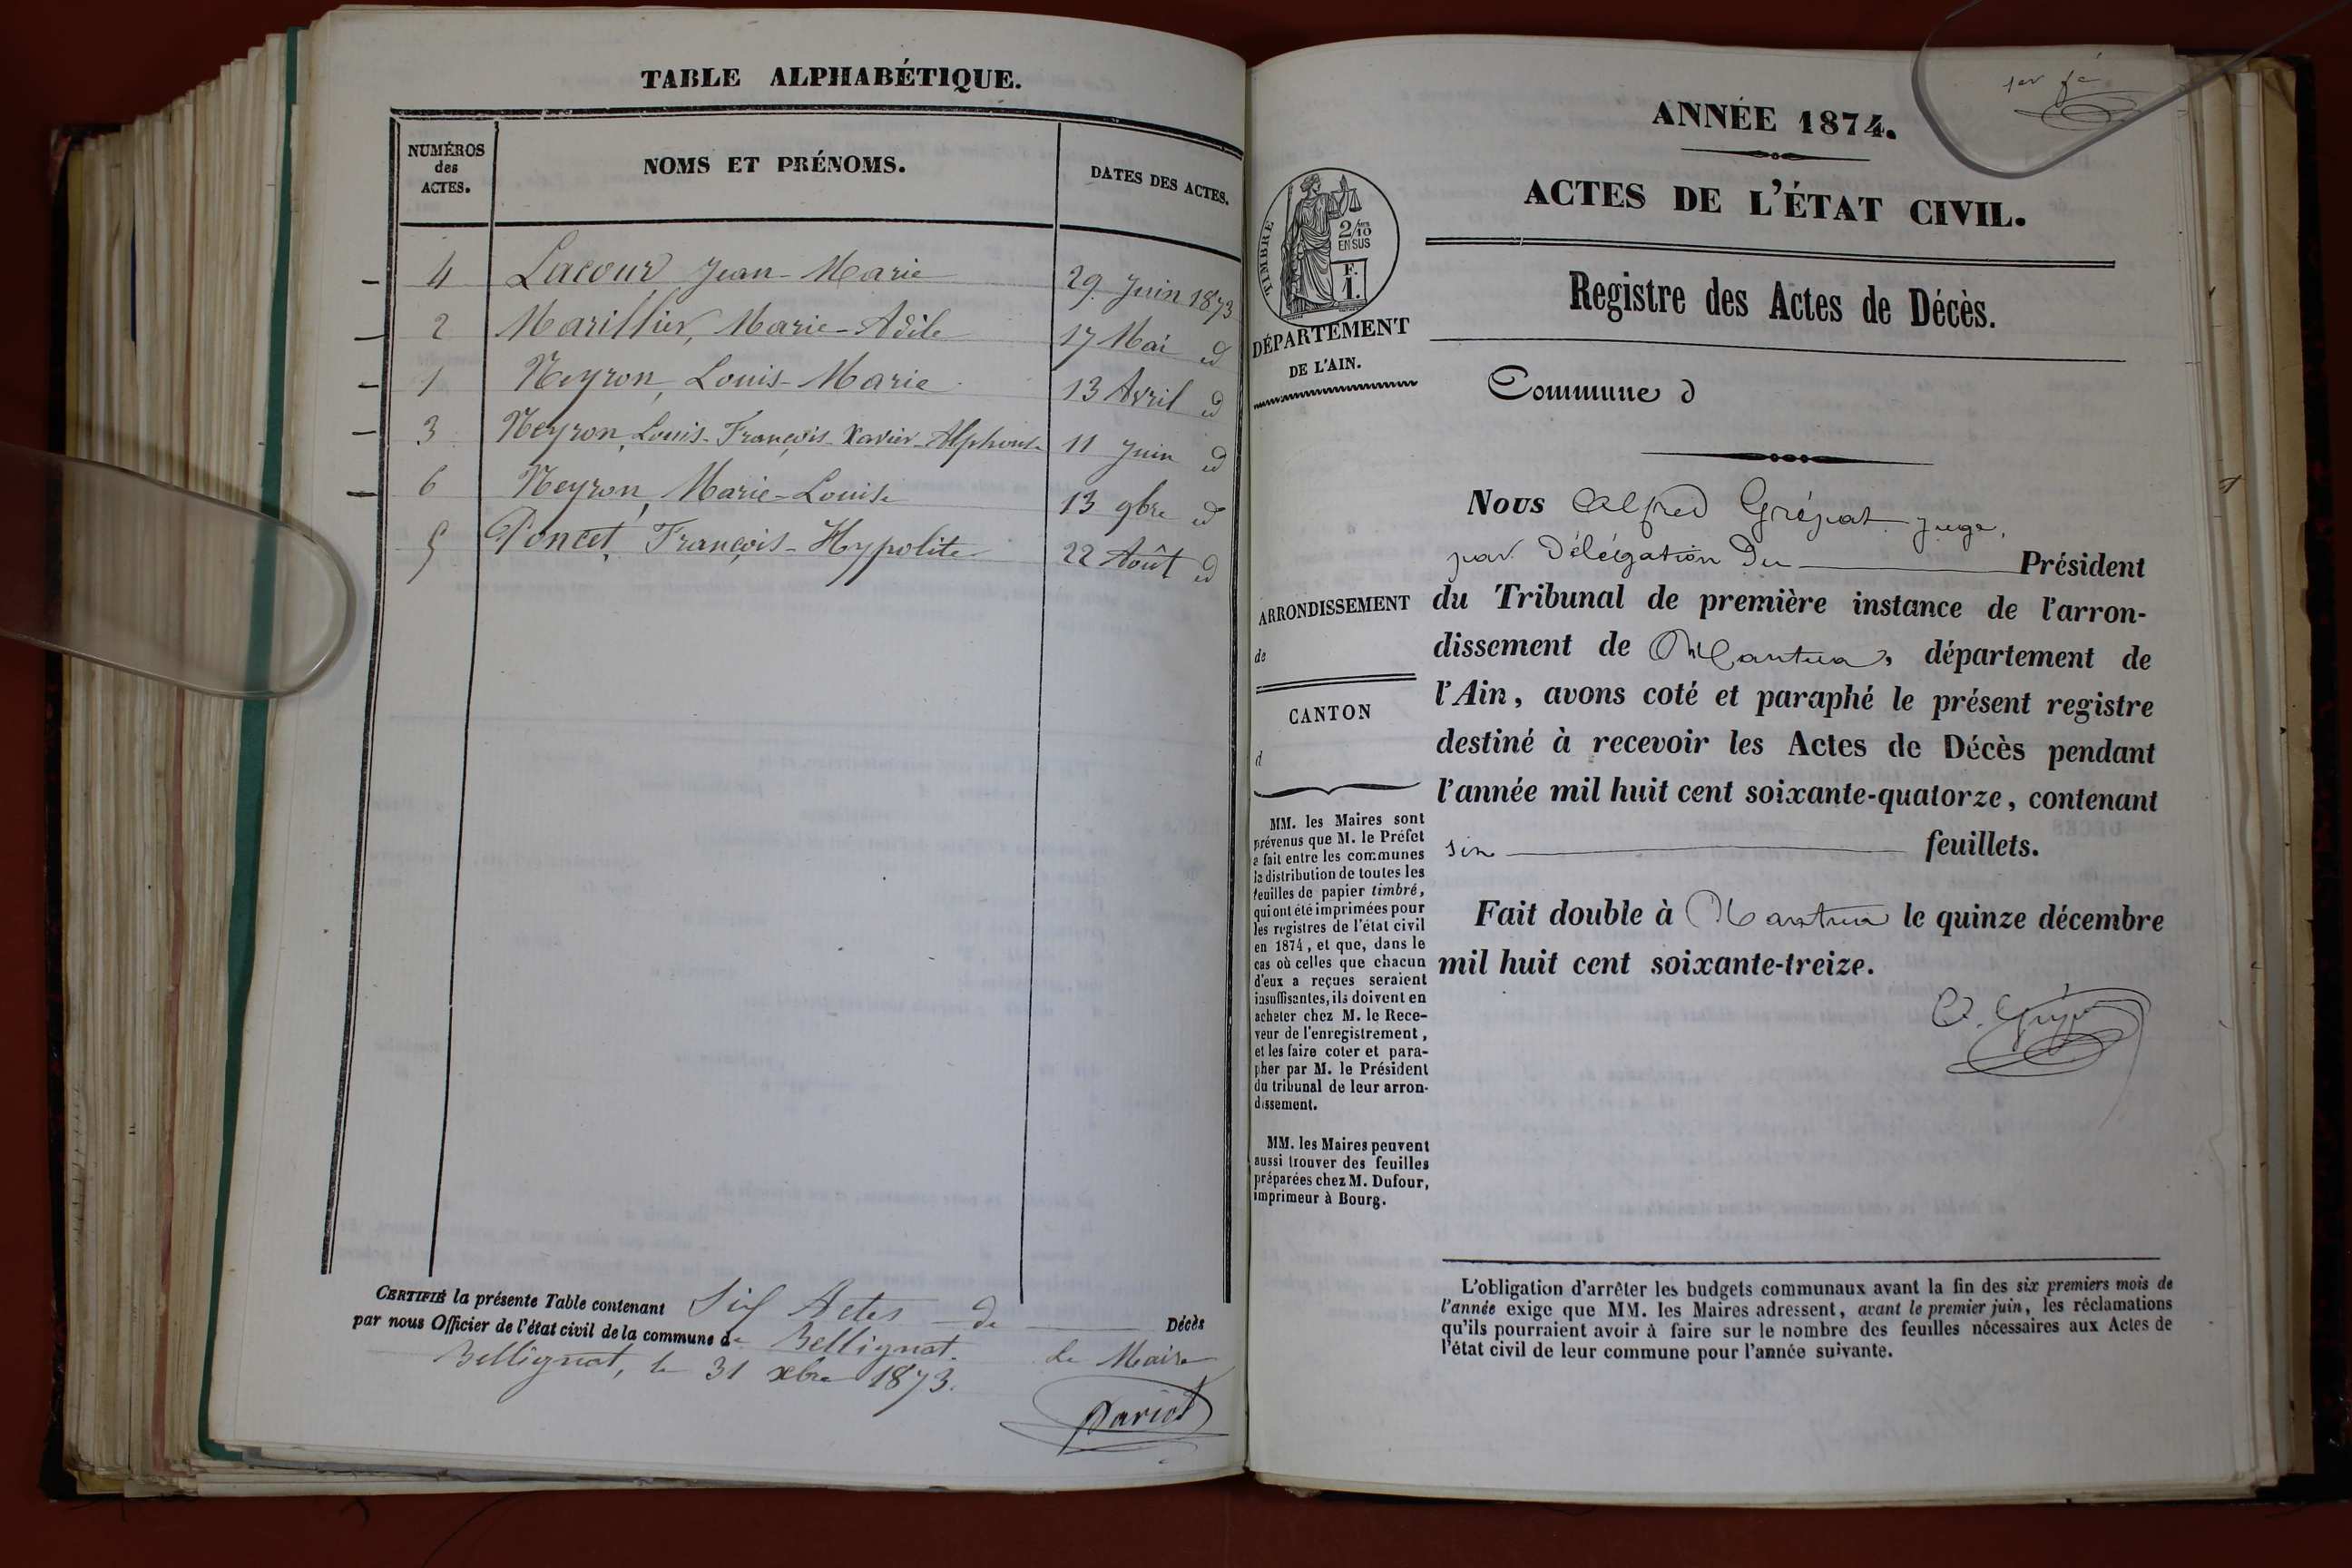 TABLE ALPHABÉTIQUE.
NUMÉROS
des
ACTES.
NOMS ET PRÉNOMS.
DATES DES ACTES.
4 Lacour Jean-Marie 29 Juin 1873
2 Marillier, Marie-Adèle 17 Mai id
1 Neyron, Louis-Marie 13 Avril id
3 Neyron, Louis-François-Xavier-Alphonse 11 Juin id
6 Neyron, Marie-Louise 13 9bre id
5 Poncet, François-Hypolite 22 Août id
CERTIFIÉ la présente Table contenant Six Actes de Décès
par nous Officier de l'état civil de la commune de Bellignat.
Bellignat, le 31 xbre 1873.
Le Maire
1er f.
ANNÉE 1874.
ACTES DE L'ÉTAT CIVIL.
TIMBRE
2/10
EN SUS
F.
1.
DÉPARTEMENT
DE L'AIN.
Registre des Actes de Décès.
Commune d
Nous Alfred Grépat juge,
par Délégation Du Président
du Tribunal de première instance de l'arron-
dissement de Nantua, département de
l'Ain, avons coté et paraphé le présent registre
destiné à recevoir les Actes de Décès pendant
l'année mil huit cent soixante-quatorze, contenant
six feuillets.
Fait double à Nantua le quinze décembre
mil huit cent soixante-treize.
ARRONDISSEMENT
de
CANTON
d
MM. les Maires sont
prévenus que M. le Préfet
a fait entre les communes
la distribution de toutes les
feuilles de papier timbré,
qui ont été imprimées pour
les registres de l'état civil
en 1874, et que, dans le
cas où celles que chacun
d'eux a reçues seraient
insuffisantes, ils doivent en
acheter chez M. le Rece-
veur de l'enregistrement,
et les faire coter et para-
pher par M. le Président
du tribunal de leur arron-
dissement.
MM. les Maires peuvent
aussi trouver des feuilles
préparées chez M. Dufour,
imprimeur à Bourg.
L'obligation d'arrêter les budgets communaux avant la fin des six premiers mois de
l'année exige que MM. les Maires adressent, avant le premier juin, les réclamations
qu'ils pourraient avoir à faire sur le nombre des feuilles nécessaires aux Actes de
l'état civil de leur commune pour l'année suivante.